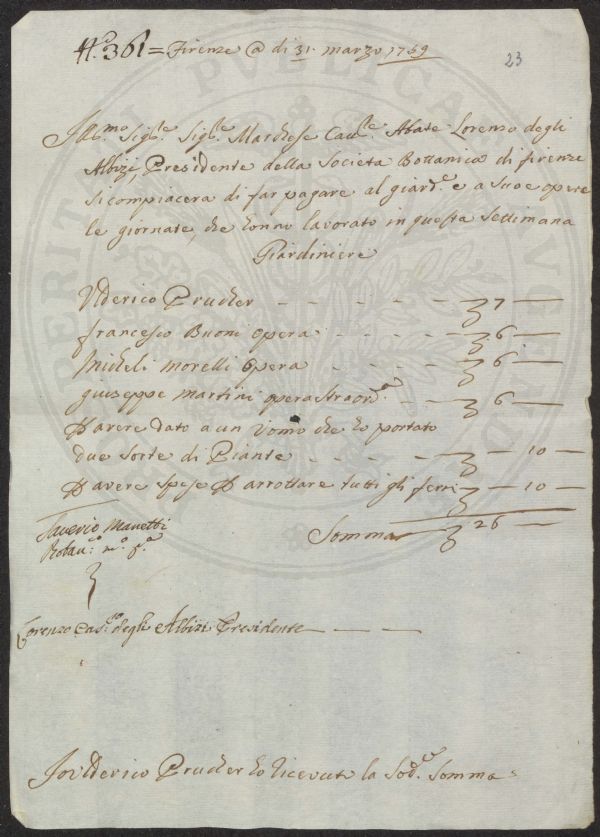 N.º 361 = Firenze @ di 31. marzo 1759
23
Ill.mo Sig.re Sig.re Marchese Cav.re Abate Lorenzo degli
Albizi, Presidente della Societa Bottanica di firenze
si compiacera di far pagare al giard.e e a suoe opere
le giornate, che hanno lavorato in questa settimana
Giardiniere
Vlderico Prucher - - - - - 7 —
francesco Buoni opera - - - - 6 —
Micheli Morelli opera - - - - 6 —
giuseppe Martini opera straord.a - - 6 —
P avere dato a un Vomo che ho portato
due sorte di Piante - - - - — 10 —
P avere spese P arrottare tutti gli ferri — 10 —
Somma 26 —
Saverio Manetti
m.o p.a
Lorenzo degli Albizi Presidente — — —
Io Vlderico Prucher ho ricevuto la Sod.a Somma